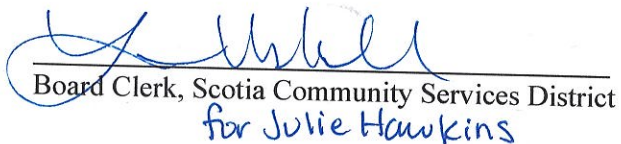 Board Clerk, Scotia Community Services District
for Julie Hawkins